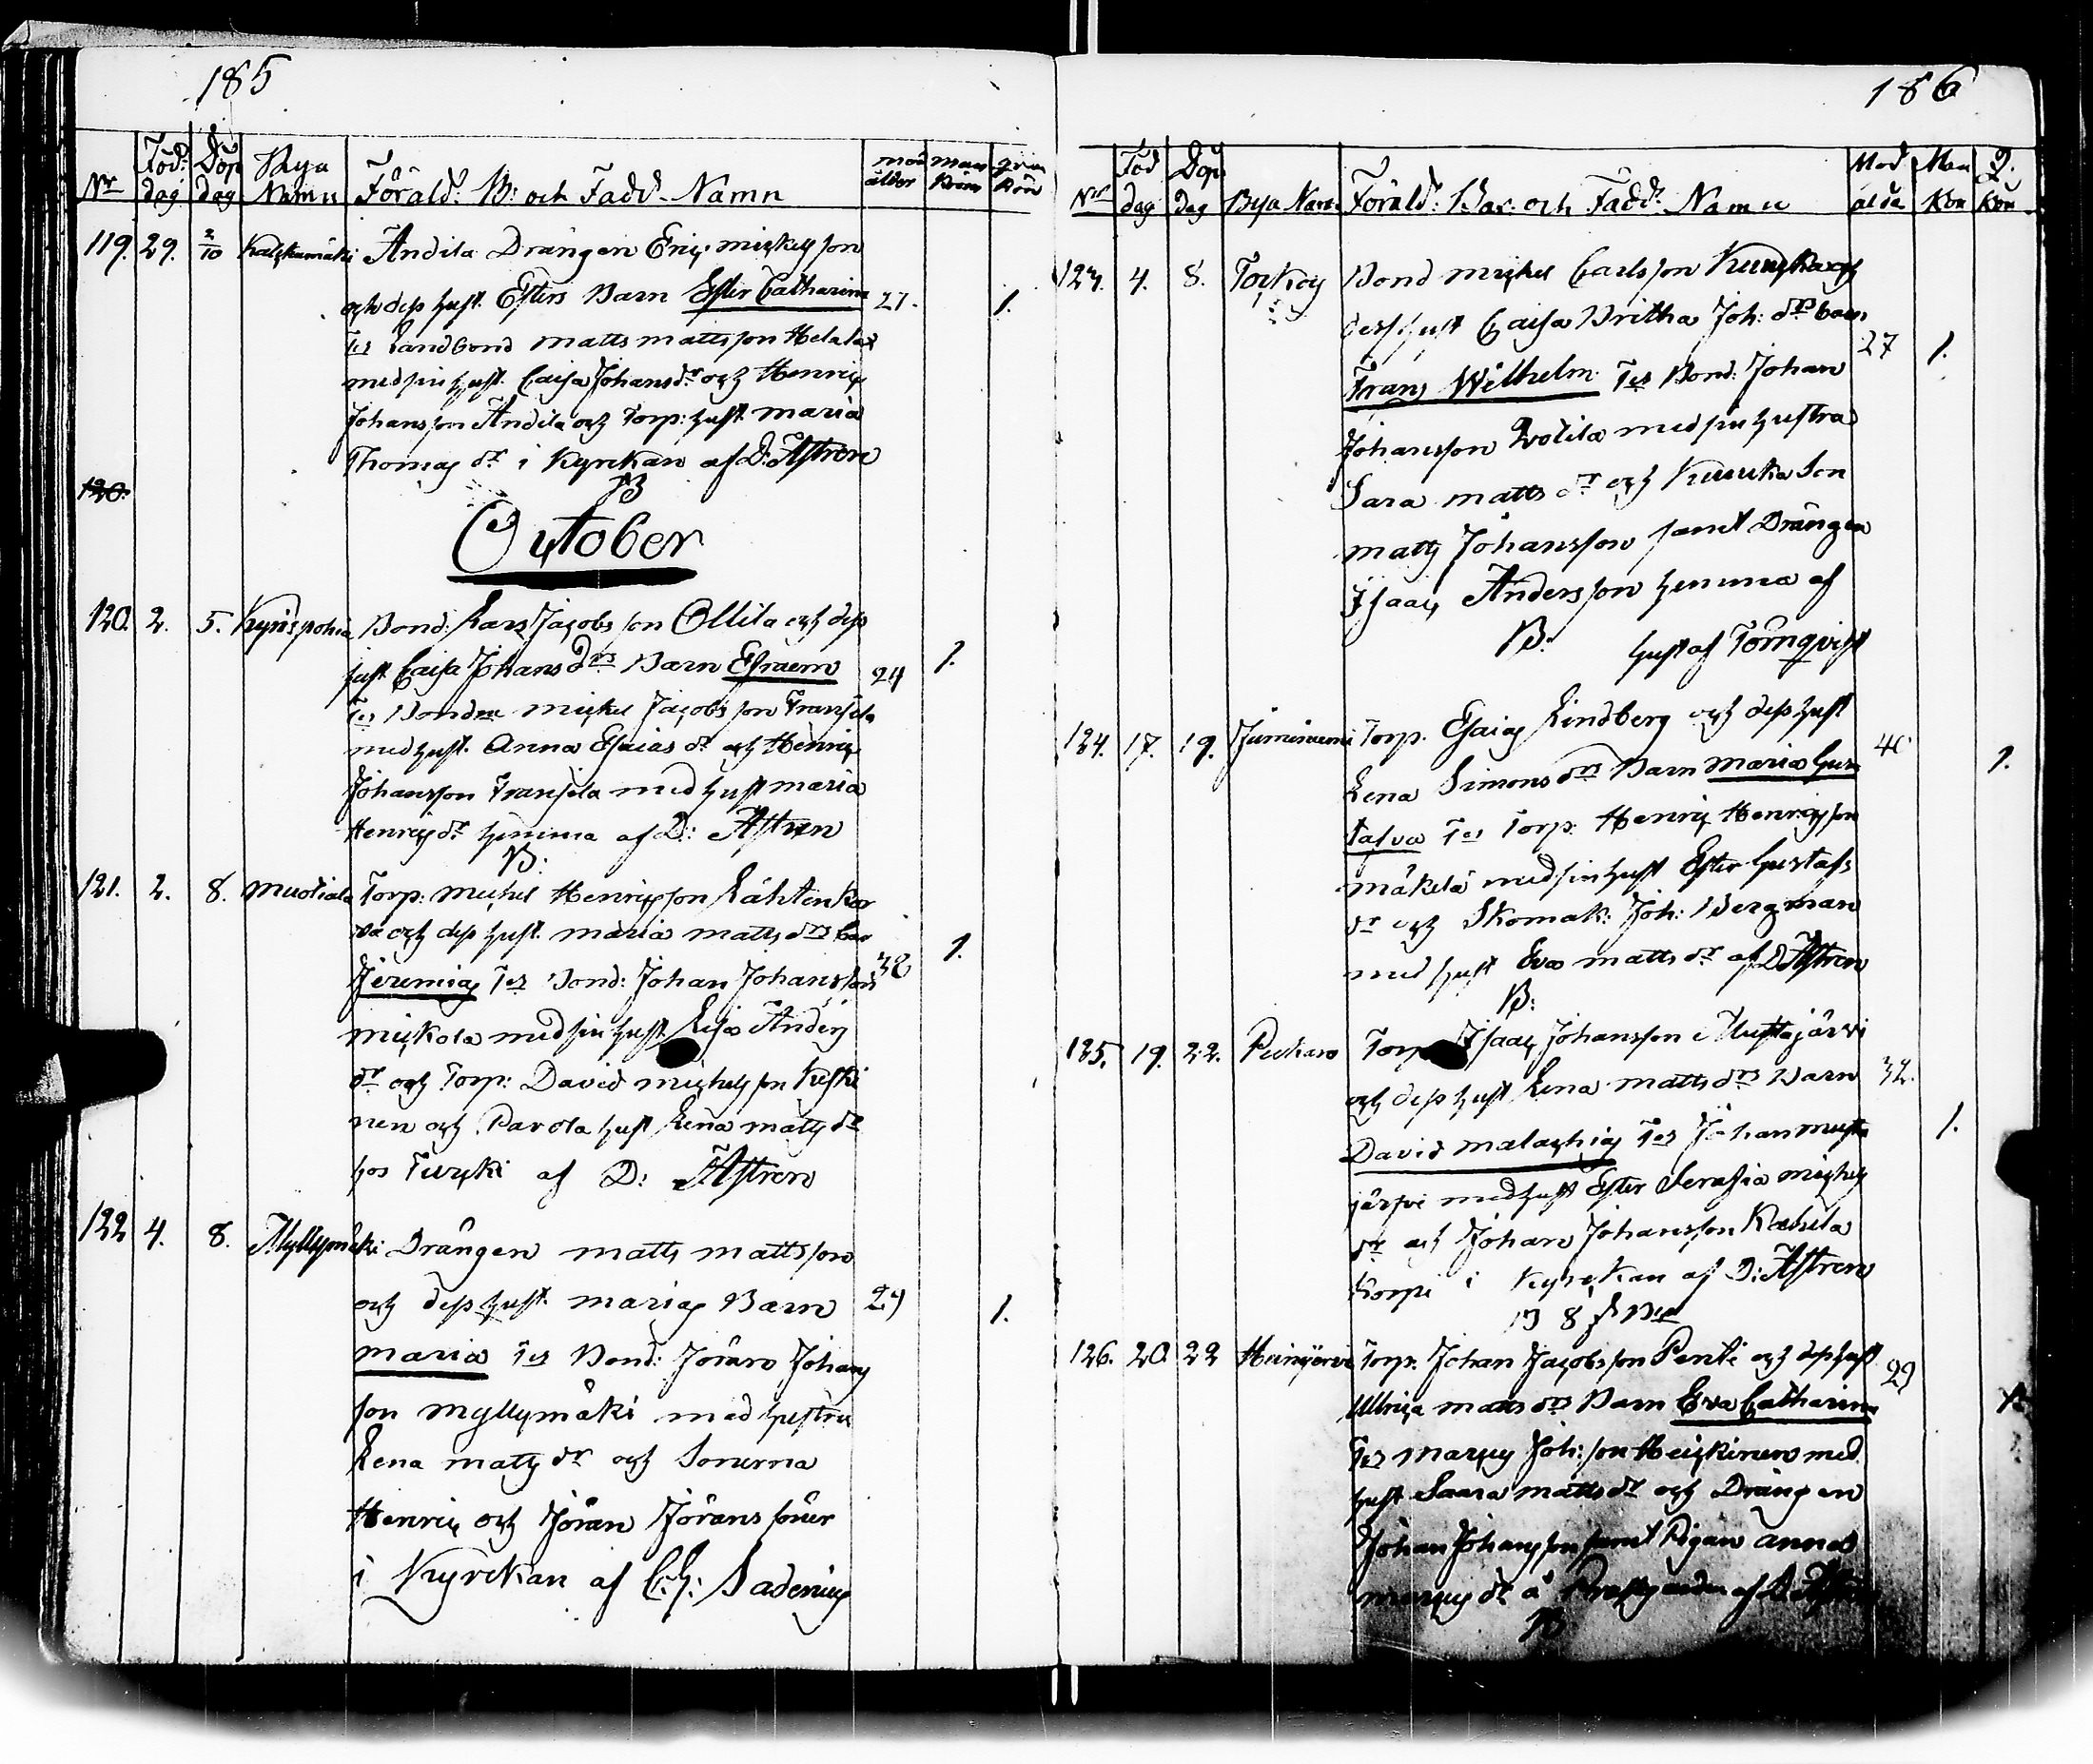 185
Nr Föd: dag Döp dag Bya Namn Föräld: B: och Fadd. Namn mod ålder man kön qvin kön
119. 29. 2/10 Andila Drängen Eric mickelsson
och dess hust. Esters Barn Ester Catharina 27. 1.
Tes Landbond matts mattsson Helala
med sin hust. Caisa Johansdr och Henric
Johansson Andila och Torp: hust maria
Thomas dr i Kyrckan af D: Astren
120. B
October
120. 2. 5. Bond: Lars Jacobsson Ollila och dess
hust Caisa Johans drs Barn Efraem 24 1.
Tes Bonden mickel Jacobsson Fransila
med hust. Anna Esaias dr och Henric
Johansson Fransila med hust maria
Henrics dr hemma af D: Astren
B:
121. 2. 8. muotiala Torp: michel Henricsson Lähtenkor
va och dess hust. maria matts drs bar
Jeremias Tes Bond: Johan Johansson 32 1.
mickola med sin hust Lisa Anders
dr och Torp: David michelsson Keski
nen och Parola hust Lena matts dr
hos Turcki af D: Astren
122 4. 8. Myllymäki Drängen matts mattsson
och dess hust. marias Barn 24 1.
maria Tes Bond: Jöran Johans
son myllymäki med hustru
Lena matts dr och Sönerna
Henric och Jöran Jörans söner
i Kyrckan af C. G: Sadenius
186
Nr Föd dag Döp dag Bya Nam Föräld: Bar: och Fadd: Namn Mod ålde Man Kön Q. Kön
123. 4. 8. Bond mickel Carlsson och
dess hust Caisa Britha Joh: drs barn
Frans Wilhelm Tes Bond: Johan 27 1.
Johansson med sin hustra
Sara matts dr och Son
matts Johansson samt Drängen
Isaac Andersson hemma af
B: Gustaf Törnqvist
124. 17. 19. Torp. Esaias Lindberg och dess hust 40
Lena Simons drs Barn maria Gus 1.
tafva Tes Torp: Henric Henricsson
mäkelä med sin hust Ester Gustafs
dr och Skomak: Joh: Bergman
med hust Eva matts dr af D Astren
B:
125. 19. 22. Torp Isaac Johansson Mustajärvi
och dess hust Lena matts drs Barn 32.
David malachias Tes Johan musta 1.
järfvi med hust Ester Serafia michels
dr och Johan Johansson
Korpi i Kyrckan af D: Astren
126. 20. 22 Heinijärvi Torp. Johan Jacobsson Penti och dess hust 29
Ulrica matts drs Barn Eva Catharina 1.
Tes Marcus Joh: son Heickinen med
hust Saara matts dr och Drängen
Johan Johansson samt Pigan anna
marcus dr å Prästgården af D Astren
B